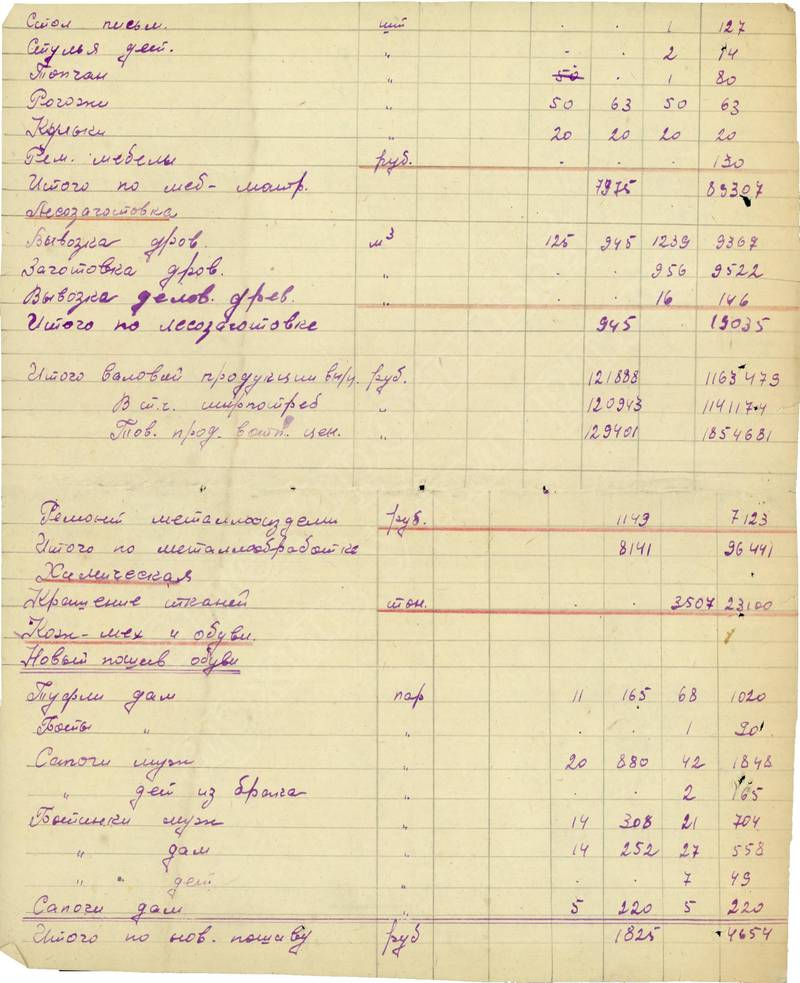 Стол письм. шт . . 1 127
Стулья дет. „ . . 2 14
Топчан „ 50 . 1 80
Рогожи „ 50 63 50 63
Крыжки „ 20 20 20 20
Рем. мебели руб. . . . 130
Итого по меб-матр. 7975 89307
Лесозаготовка
Вывозка дров. м³ 125 945 1239 9367
Заготовка дров. „ . . 956 9522
Вывозка делов. древ. „ . . 16 146
Итого по лесозаготовке 945 19035
Итого валовой продукции руб. 121888 1163479
В т.ч. ширпотреб „ 120943 1141174
Тов. прод. в отп. цен. „ 129401 1854681
Ремонт металлоизделий руб. 1149 7123
Итого по металлообработке 8141 96441
Химическая
Крашение тканей . . 3507 23100
Кож-мех и обуви.
Новый пошив обуви
Туфли дам пар 11 165 68 1020
Боты „ „ . . 1 90
Сапоги муж „ 20 880 42 1848
„ дет из брака „ . . 2 165
Ботинки муж „ 14 308 21 704
„ дам „ 14 252 27 558
„ „ дет „ . . 7 49
Сапоги дам „ 5 220 5 220
Итого по нов. пошиву руб 1825 4654